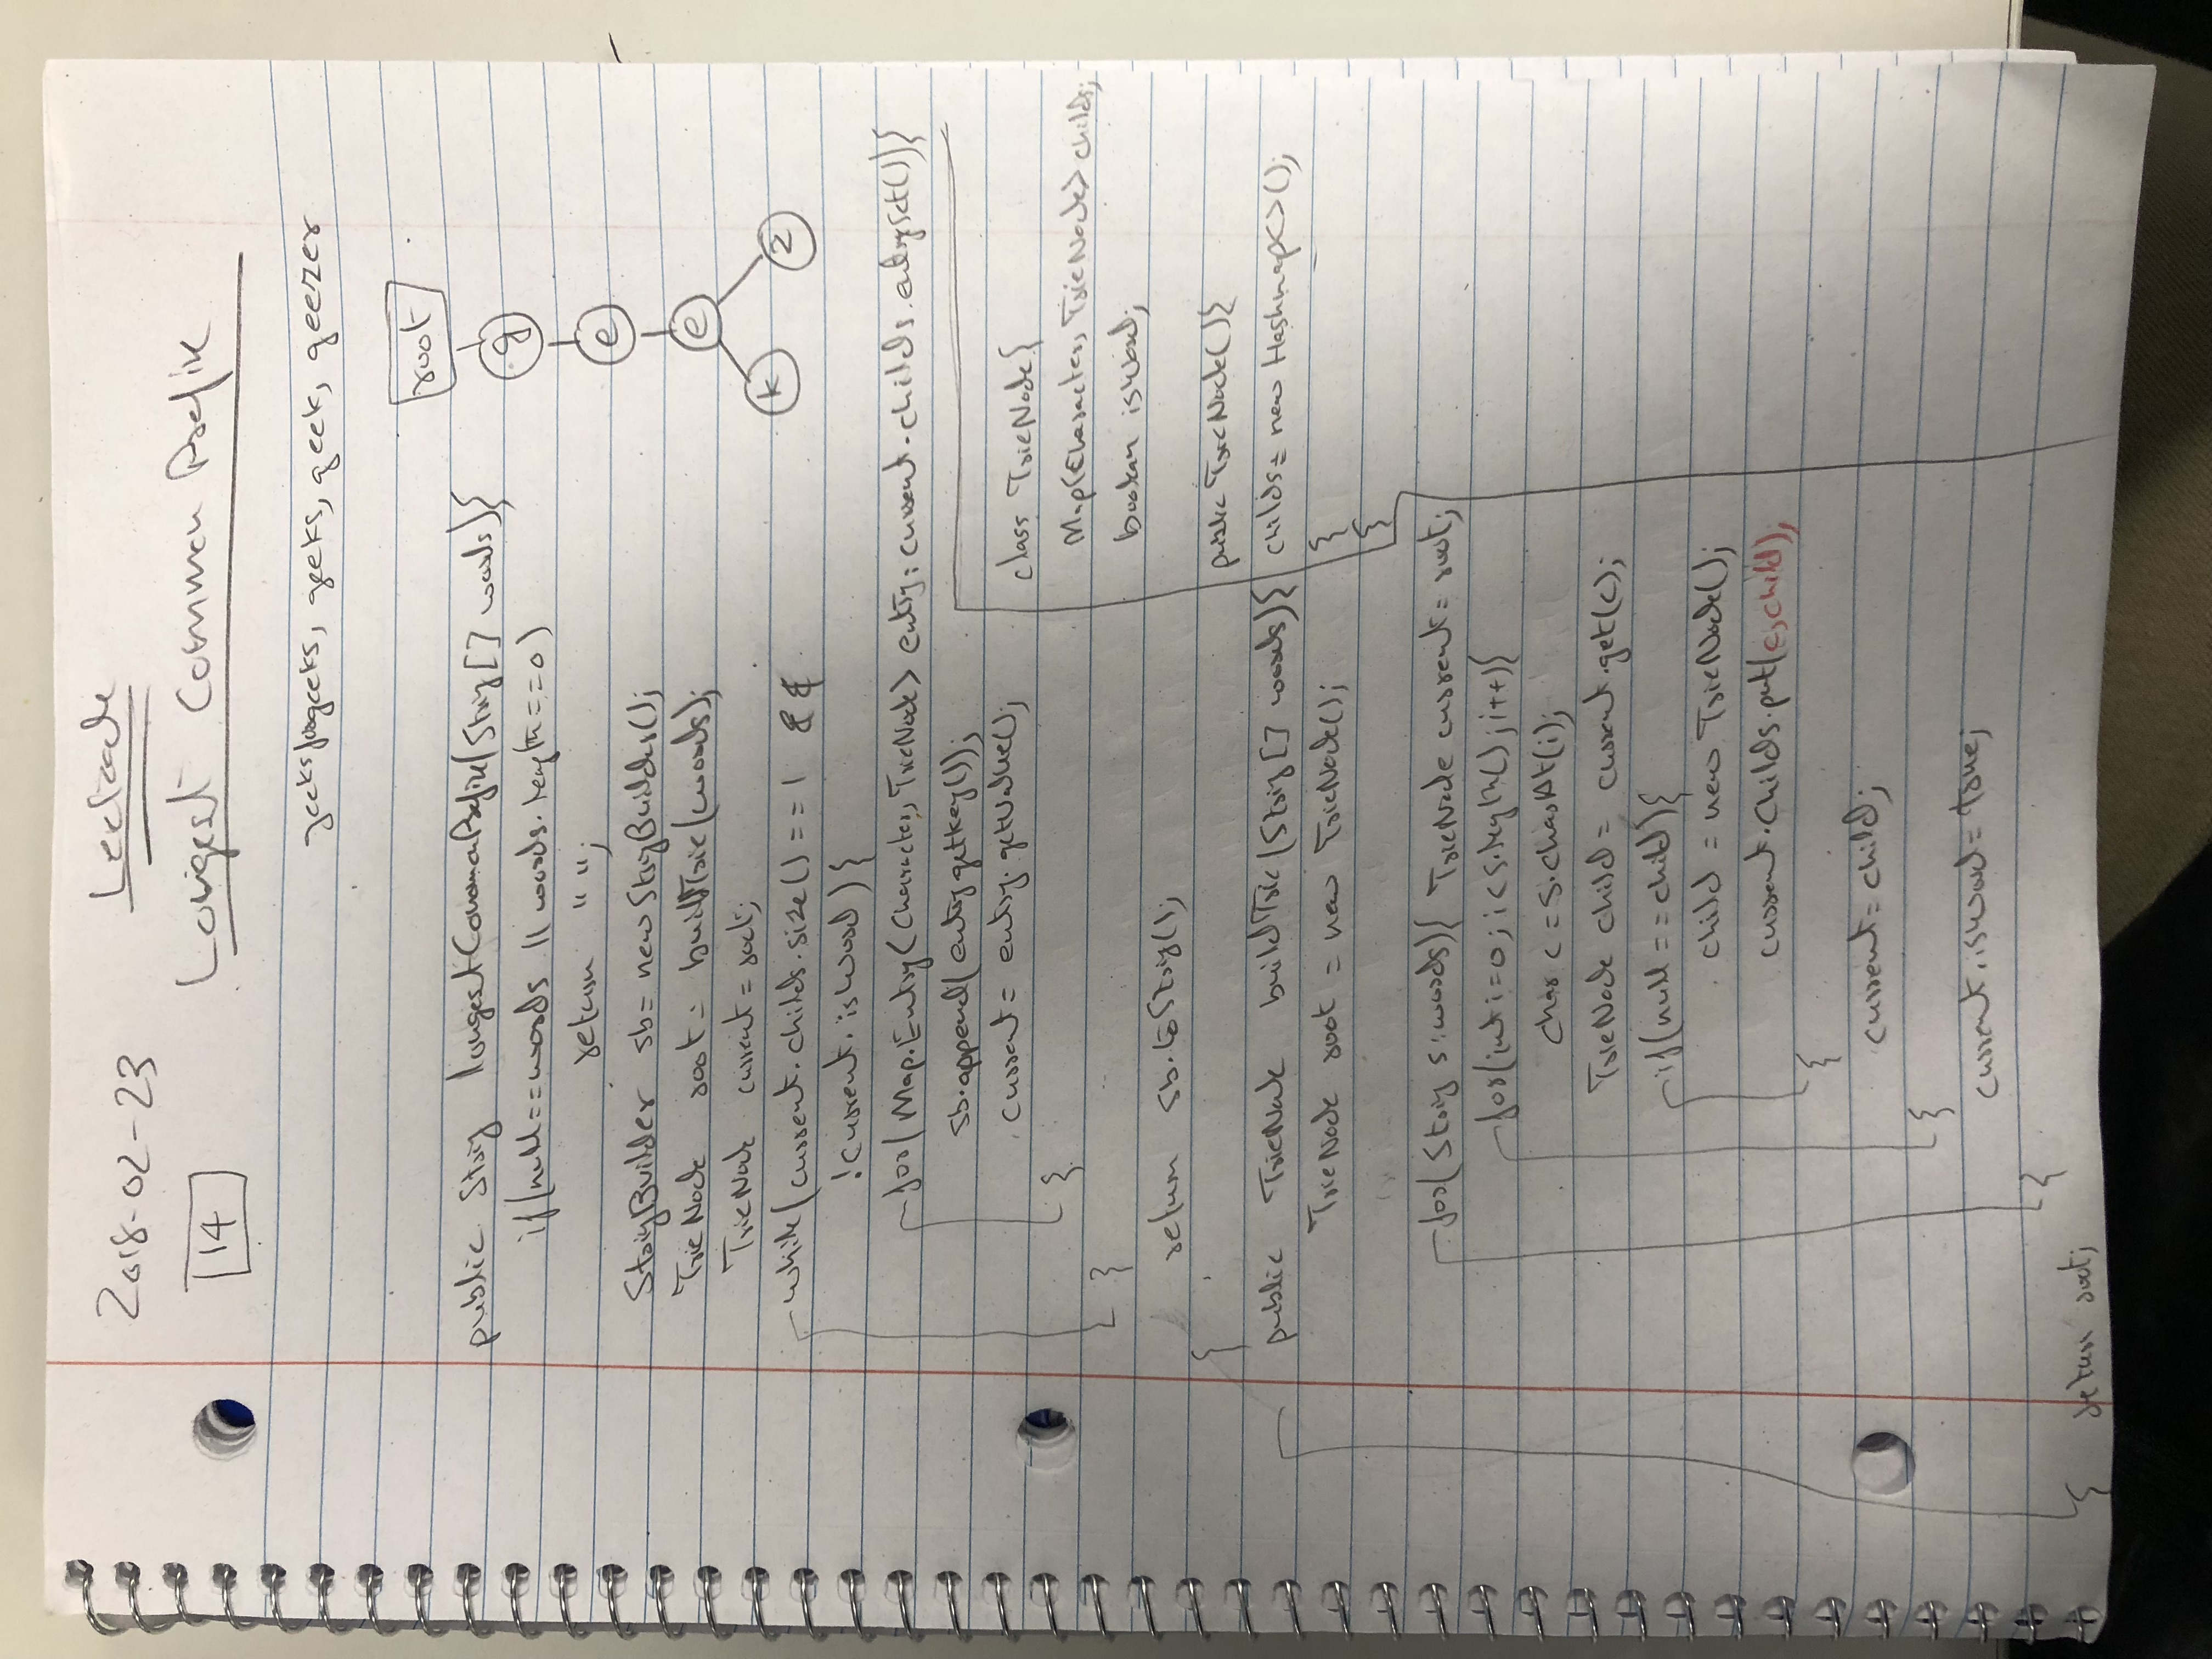 2018-02-23
Leetcode
14
Longest Common Prefix
geeksforgeeks, geeks, geek, geezer
root
g
e
e
k z
public String longestCommonPrefix(String[] words){
if(null==words || words.length==0)
return "";
StringBuilder sb= new StringBuilder();
TrieNode root= buildTrie(words);
TrieNode current= root;
while(current.childs.size()==1 &&
!current.isWord){
for(Map.Entry<Character, TrieNode> entry: current.childs.entrySet()){
sb.append(entry.getKey());
current= entry.getValue();
}
}
return sb.toString();
}
class TrieNode{
Map<Character, TrieNode> childs;
boolean isWord;
public TrieNode(){
childs= new Hashmap<>();
}
}
public TrieNode buildTrie(String[] words){
TrieNode root = new TrieNode();
for(String s:words){ TrieNode current= root;
for(int i=0; i<s.length(); i++){
char c = s.charAt(i);
TrieNode child = current.get(c);
if(null==child){
child = new TrieNode();
current.childs.put(c,child);
}
current= child;
}
current.isWord= true;
}
} return root;